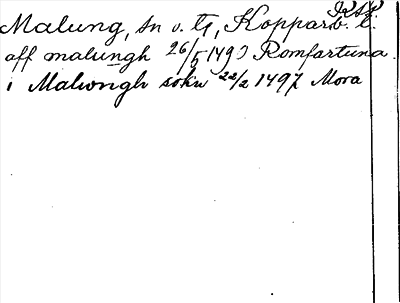 Malung, sn v. tg, Kopparb. l.
aff malungh 26/5 1493 Romfartuna.
i Malwngh sokn 22/2 1497 Mora